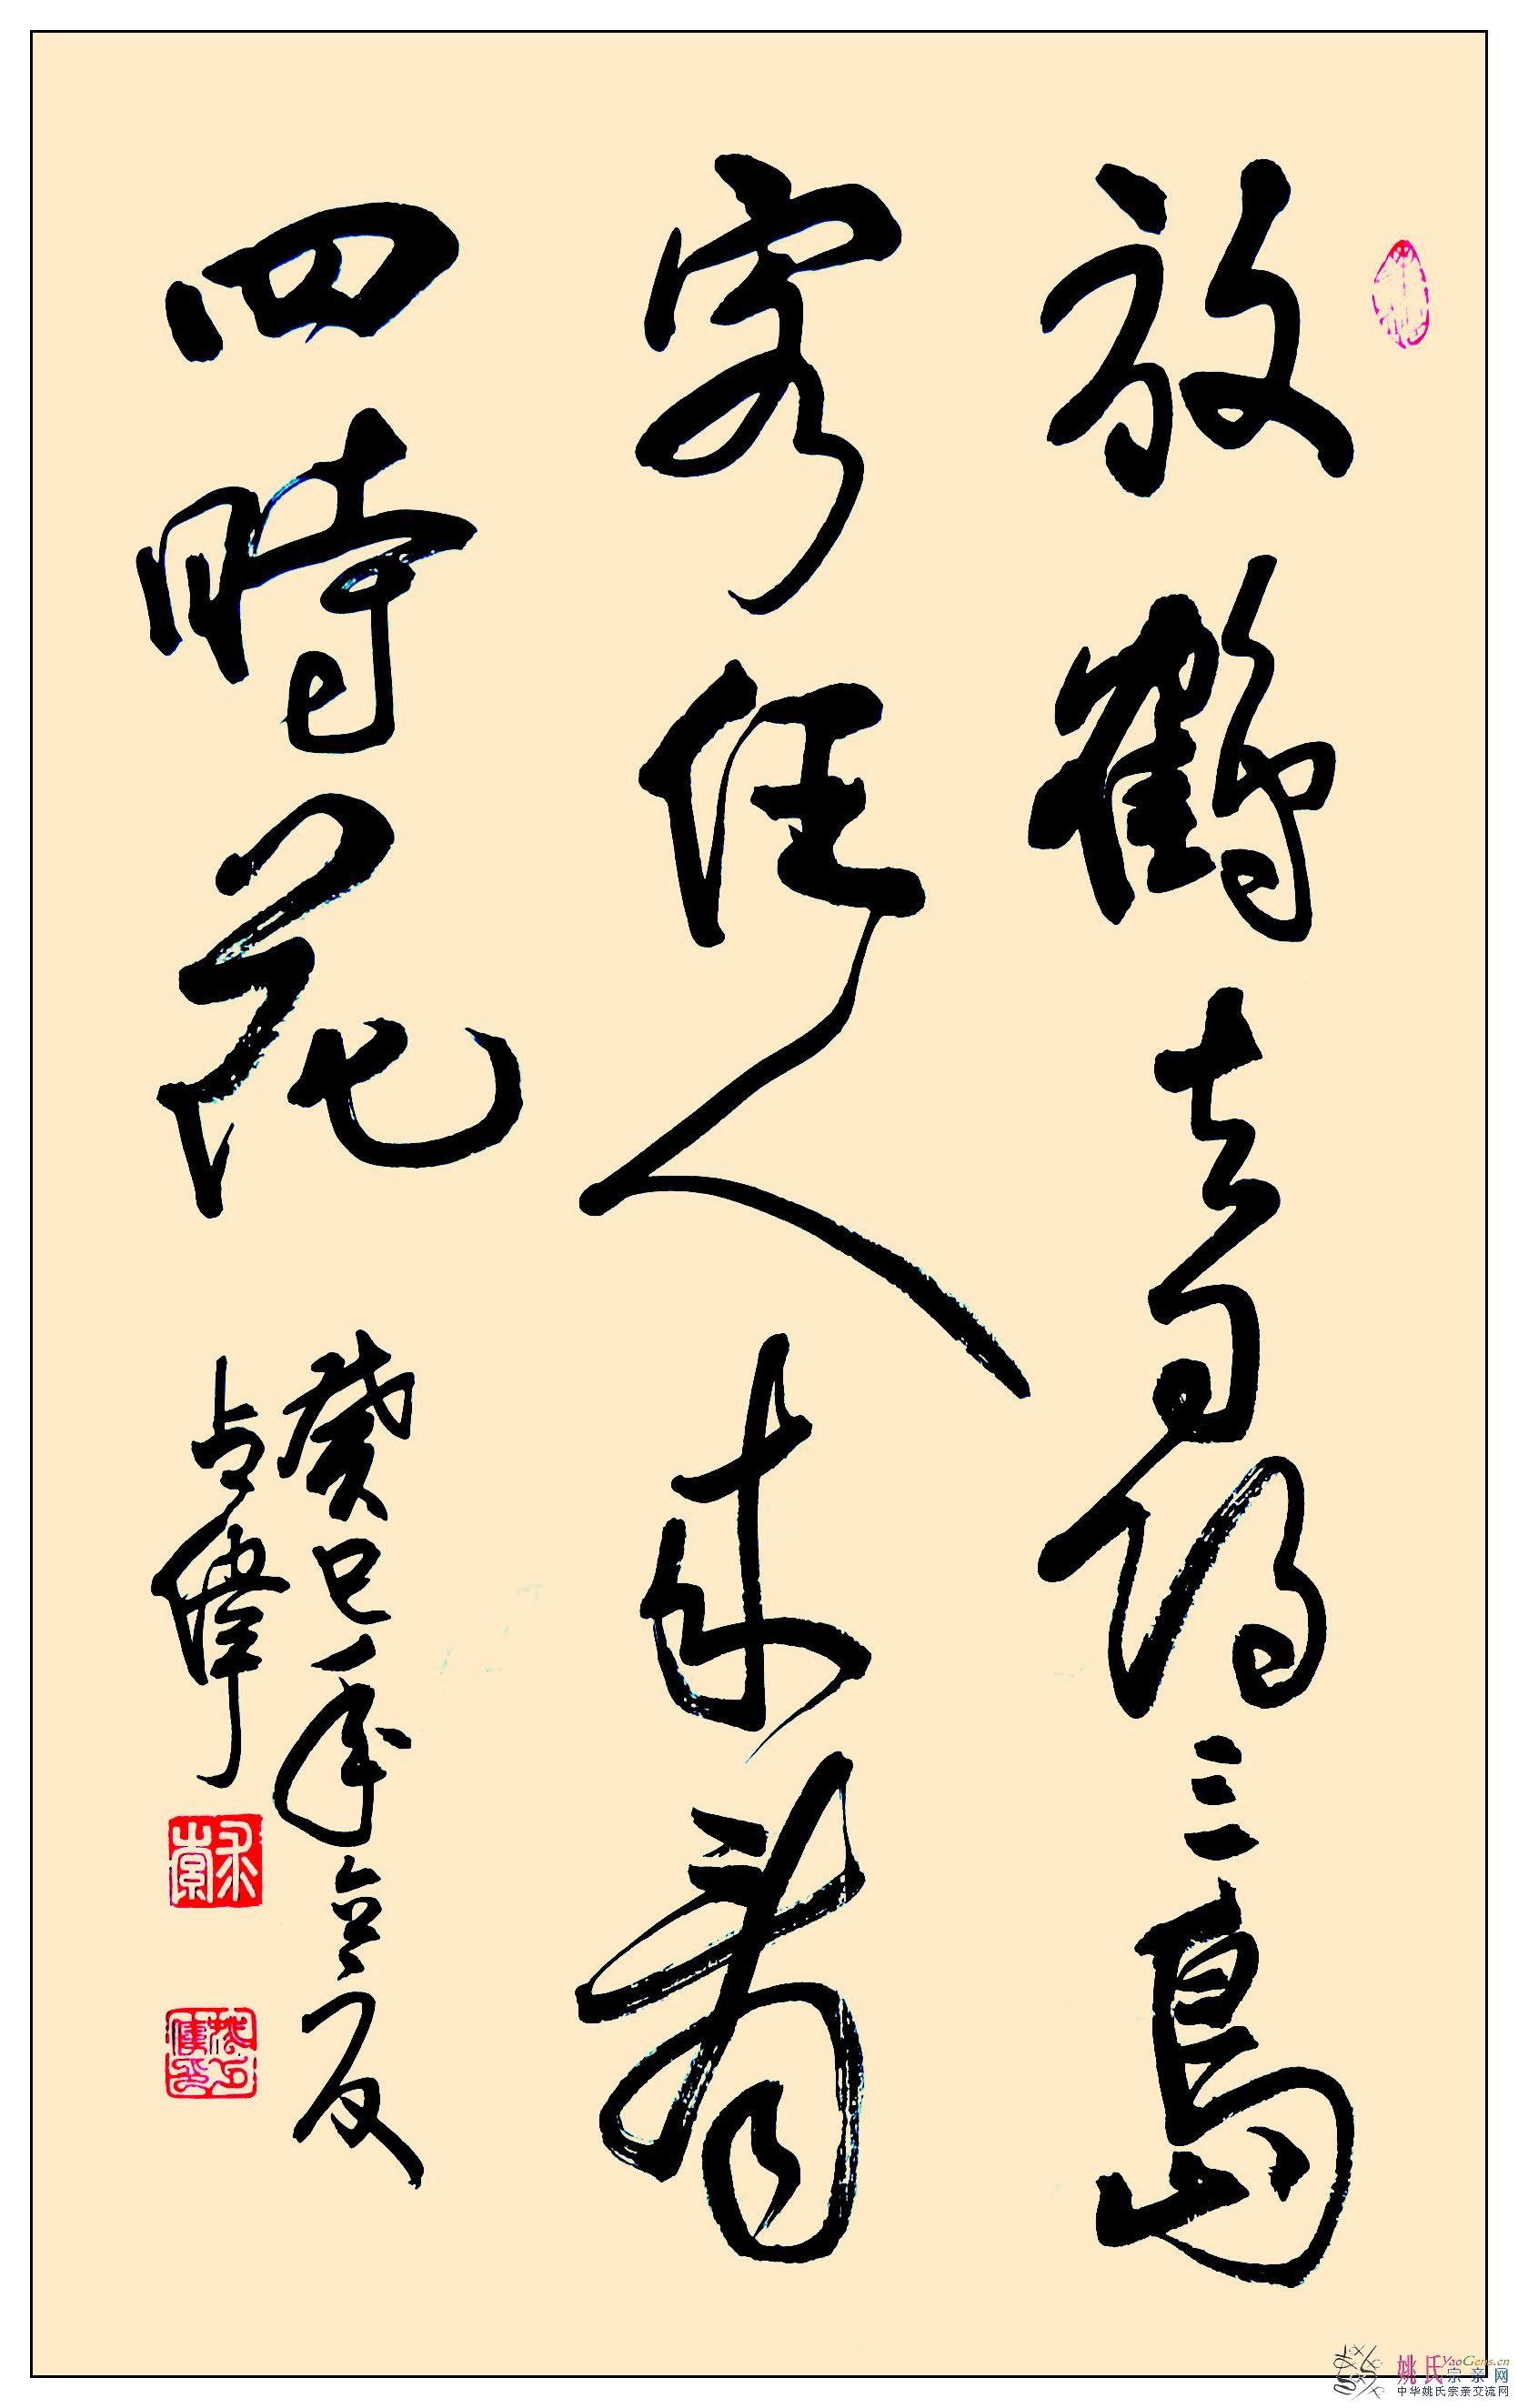 放鹤去寻三岛
客任人来看
四时花
癸巳年
占伟
姚氏宗亲网
YaoGens.cn
中华姚氏宗亲交流网